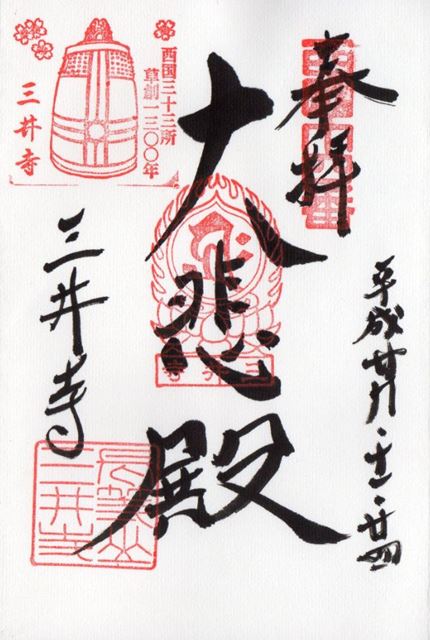 奉拝
平成廿九・十一・廿四
大悲殿
三井寺
西国三十三所
草創一三〇〇年
三井寺
三井寺
長等山
三井寺